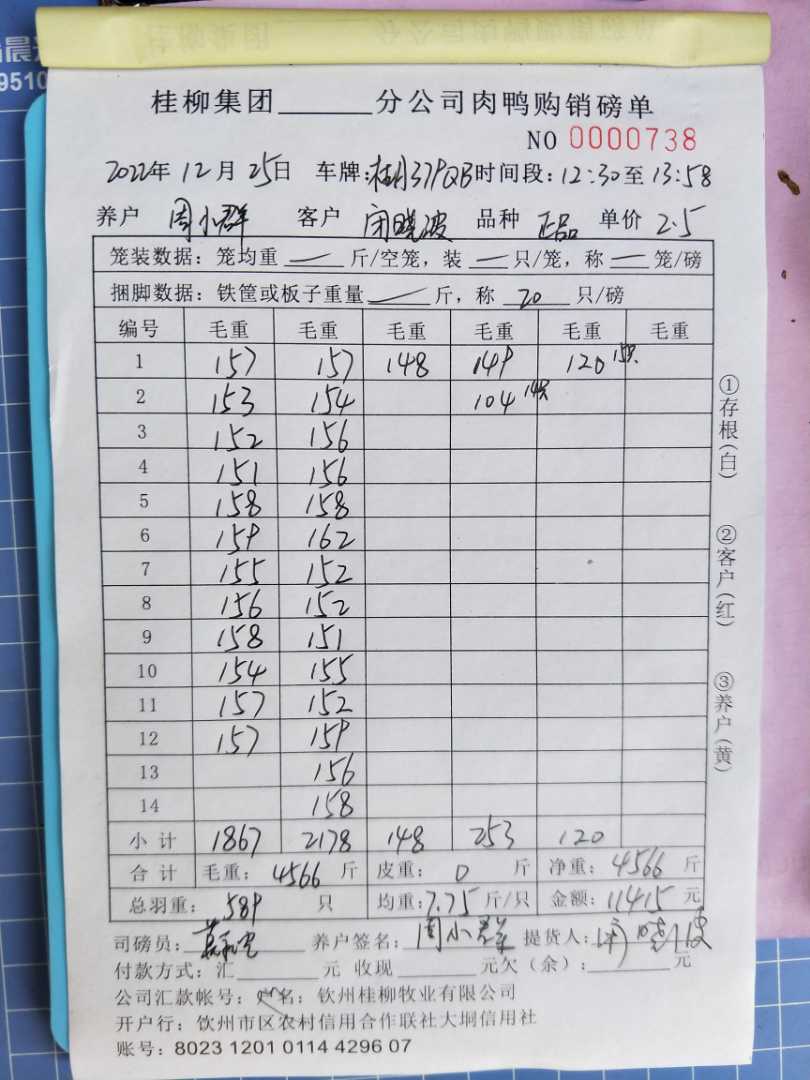 晨
9510
桂柳集团______分公司肉鸭购销磅单
NO 0000738
2022年12月25日 车牌:桂 379QB时间段:12:30至13:58
养户 周小群 客户 闭晓波 品种 正品 单价 2.5
笼装数据:笼均重 — 斤/空笼,装 — 只/笼,称 — 笼/磅
捆脚数据:铁筐或板子重量 — 斤,称 20 只/磅
编号 毛重 毛重 毛重 毛重 毛重 毛重
1 157 157 148 149 120 15只
2 153 154 104 14只
3 152 156
4 151 156
5 158 158
6 159 162
7 155 152
8 156 152
9 158 151
10 154 155
11 157 152
12 157 159
13 156
14 158
小计 1867 2178 148 253 120
合计 毛重: 4566 斤 皮重: 0 斤 净重: 4566 斤
总羽重: 589 只 均重:7.75斤/只 金额: 11415 元
司磅员: 养户签名: 周小群 提货人: 闭晓波
付款方式:汇______元 收现______元欠(余):______元
公司汇款帐号:户名:钦州桂柳牧业有限公司
开户行:钦州市区农村信用合作联社大垌信用社
账号:8023 1201 0114 4296 07
①存根(白)
②客户(红)
③养户(黄)